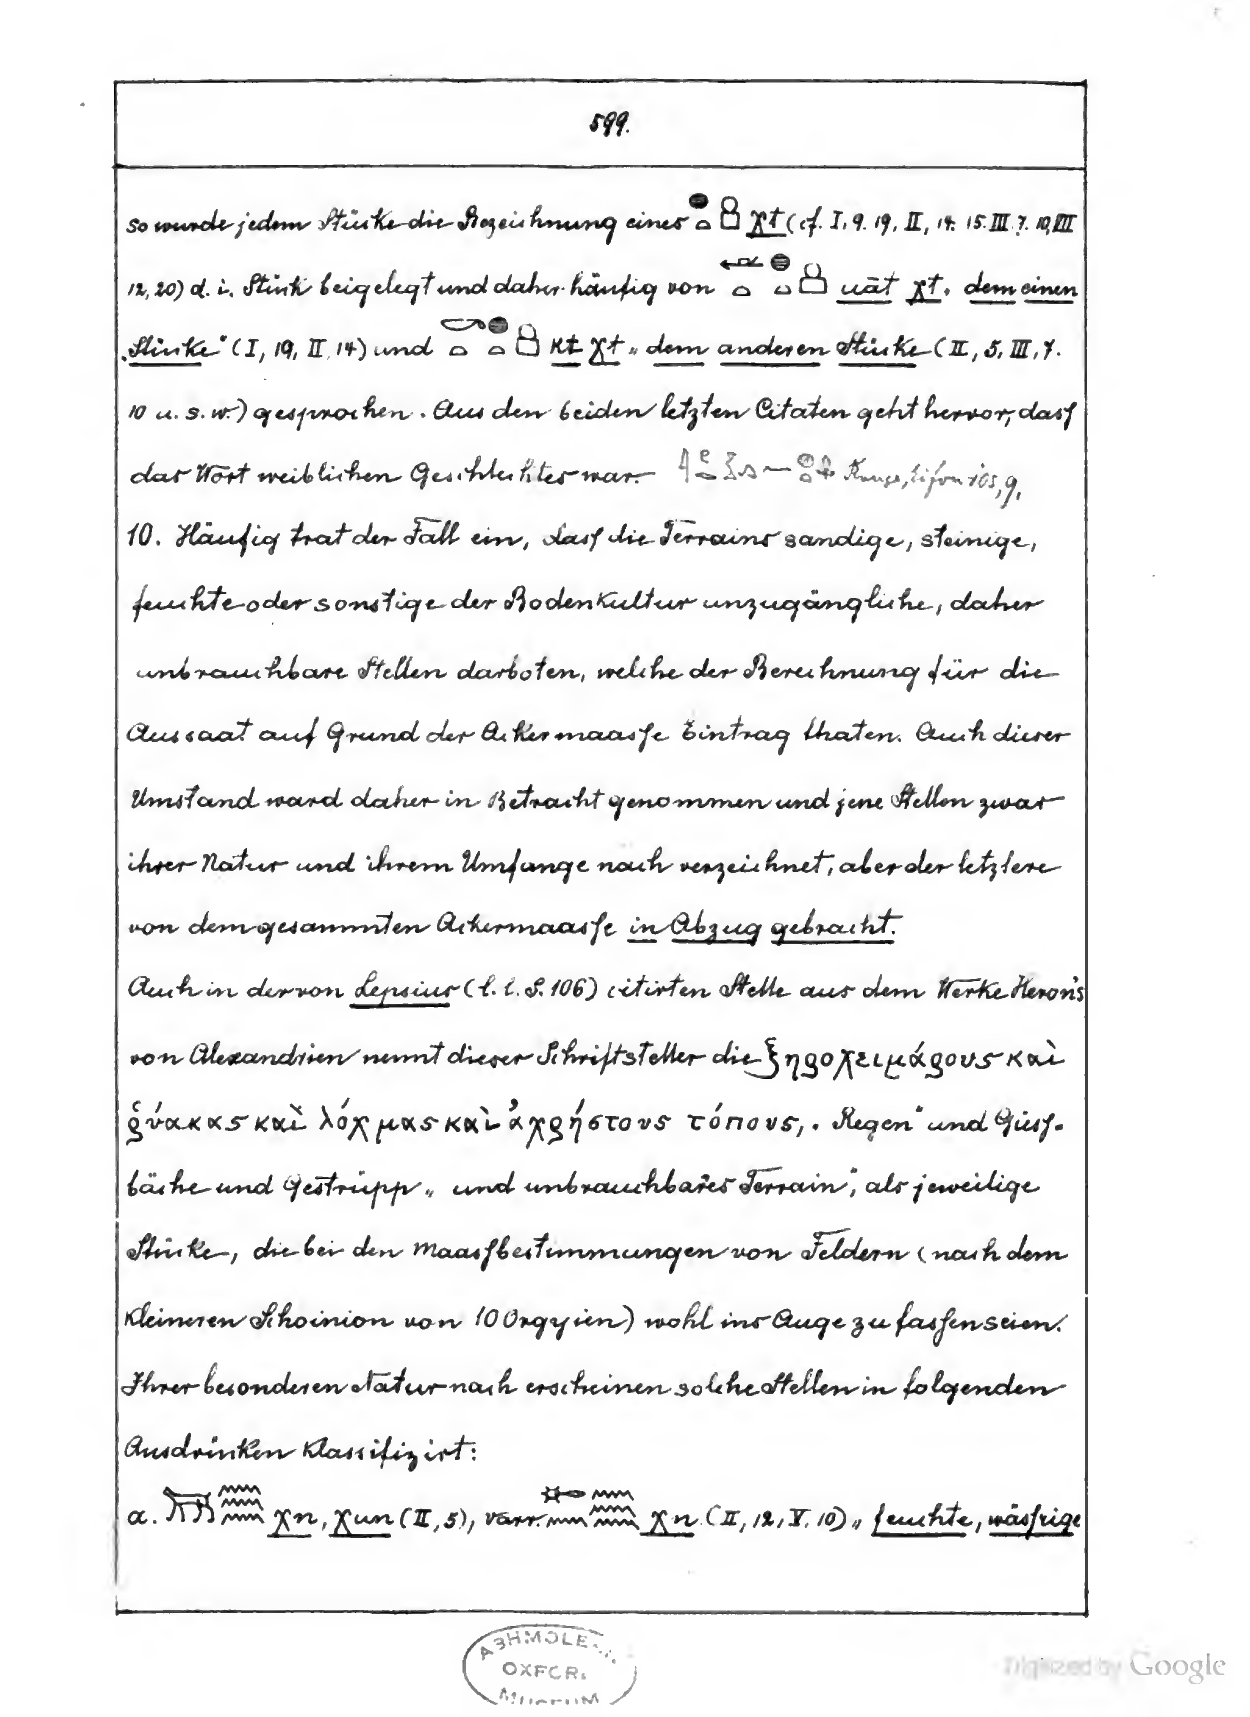 599.
so wurde jedem Stücke die Bezeichnung eines χt (cf. I, 9. 19, II, 14. 15. III. 7. 10, III
12, 20) d. i. Stück beigelegt und daher häufig von uāt χt, dem einen
„Stücke“ (I, 19, II, 14) und kt χt „dem anderen Stücke (II, 5, III, 7.
10 u. s. w.) gesprochen. Aus den beiden letzten Citaten geht hervor, dass
das Wort weiblichen Geschlechtes war.
10. Häufig trat der Fall ein, dass die Terrains sandige, steinige,
feuchte oder sonstige der Bodenkultur unzugängliche, daher
unbrauchbare Stellen darboten, welche der Berechnung für die
Aussaat auf Grund der Ackermaasse Eintrag thaten. Auch dieser
Umstand ward daher in Betracht genommen und jene Stellen zwar
ihrer Natur und ihrem Umfange nach verzeichnet, aber der letztere
von dem gesammten Ackermaasse in Abzug gebracht.
Auch in der von Lepsius (l. l. S. 106) citirten Stelle aus dem Werke Heron's
von Alexandrien nennt dieser Schriftsteller die ξηροχειμάρους καὶ
ῥύακας καὶ λόχμας καὶ ἀχρήστους τόπους, „Regen“ und Giess-
bäche und Gestrüpp „und unbrauchbares Terrain“, als jeweilige
Stücke, die bei den Maassbestimmungen von Feldern (nach dem
kleineren Schoinion von 10 Orgyien) wohl ins Auge zu fassen seien.
Ihrer besonderen Natur nach erscheinen solche Stellen in folgenden
Ausdrücken klassifizirt:
a. χn, χun (II, 5), varr. χn (II, 12, V. 10) „feuchte, wässrige
ASHMOLE
OXFOR
MUSEUM
Digitized by Google